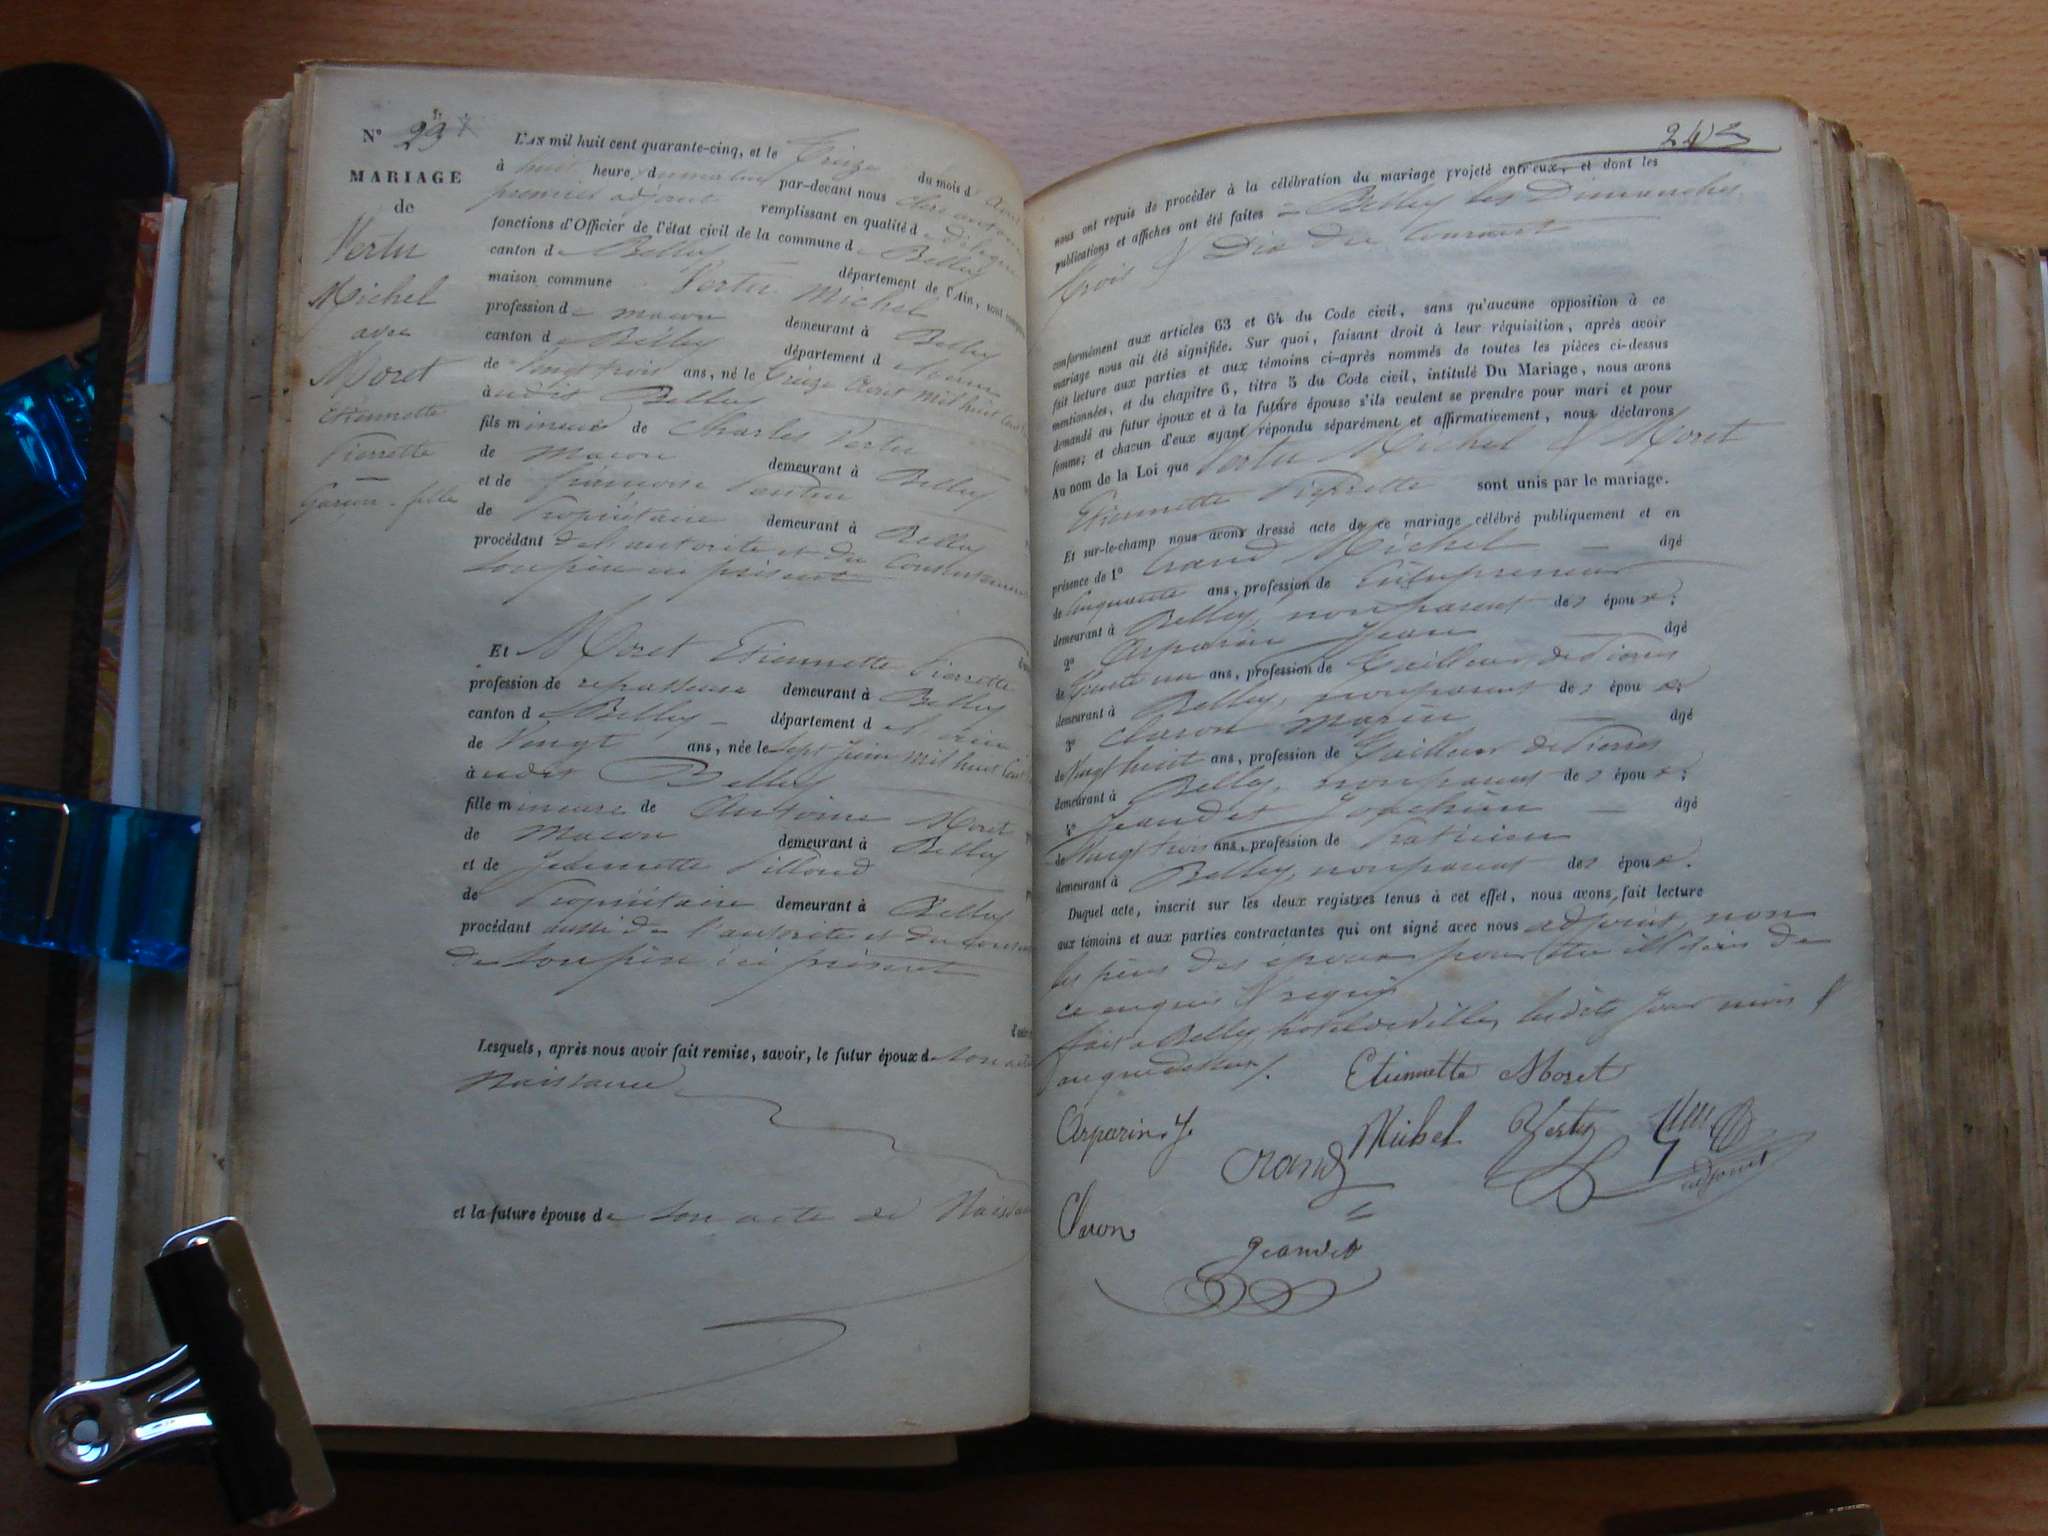 N° 29
MARIAGE
de
Vertu
Michel
avec
Moret
Etiennette
Pierrette
Garçon - fille
L'AN mil huit cent quarante-cinq, et le Treize du mois d'
à huit heures du matin par-devant nous
premier adjoint remplissant en qualité de
fonctions d'Officier de l'état civil de la commune de Belley
canton de Belley département de l'Ain, sont
maison commune Vertu Michel
profession de macon demeurant à Belley
canton de Belley département d
de Vingt trois ans, né le Treize Aout mil huit Cent
à udit Belley
fils mineur de Charles Vertu
de Macon demeurant à Belley
et de
de Propriétaire demeurant à Belley
procédant de l'autorité et du Consentement
Son père ici présent
Et Moret Etiennette Pierrette
profession de repasseuse demeurant à Belley
canton de Belley département de l'Ain
de Vingt ans, née le Sept Juin mil huit Cent
à udit Belley
fille mineure de Antoine Moret
de Macon demeurant à Belley
et de Jeannette Pilloud
de Propriétaire demeurant à Belley
procédant aussi de l'autorité et du
de Son père ici présent
Lesquels, après nous avoir fait remise, savoir, le futur époux de Son acte
Naissance
et la future épouse de Son acte de
nous ont requis de procéder à la célébration du mariage projeté entr'eux, et dont les
publications et affiches ont été faites à Belley les Dimanches
trois & Dix du Courant
conformément aux articles 63 et 64 du Code civil, sans qu'aucune opposition à ce
mariage nous ait été signifiée. Sur quoi, faisant droit à leur réquisition, après avoir
fait lecture aux parties et aux témoins ci-après nommés de toutes les pièces ci-dessus
mentionnées, et du chapitre 6, titre 5 du Code civil, intitulé Du Mariage, nous avons
demandé au futur époux et à la future épouse s'ils veulent se prendre pour mari et pour
femme; et chacun d'eux ayant répondu séparément et affirmativement, nous déclarons
Au nom de la Loi que Vertu Michel & Moret
Etiennette Pierrette sont unis par le mariage.
Et sur-le-champ nous avons dressé acte de ce mariage célébré publiquement et en
présence de 1° Crand Michel âgé
de Cinquante ans, profession de Entrepreneur
demeurant à Belley, non parent des époux;
2° Arparin Jean âgé
de Trente un ans, profession de Tailleur de Pierres
demeurant à Belley, non parent des époux;
3° Charon Marin âgé
de Vingt huit ans, profession de Tailleur de Pierres
demeurant à Belley, non parent des époux;
4° Jeandet Joachim âgé
de Vingt trois ans, profession de Praticien
demeurant à Belley, non parent des époux.
Duquel acte, inscrit sur les deux registres tenus à cet effet, nous avons fait lecture
aux témoins et aux parties contractantes qui ont signé avec nous adjoint, non
les pères des époux pour être illitérés de
ce enquis & requis
fait à Belley, hotel de ville, lesdits jour mois &
an que dessus.
Etiennette Moret
Arparin J.
Michel Vertu
Crand
adjoint
Charon
Jeandet